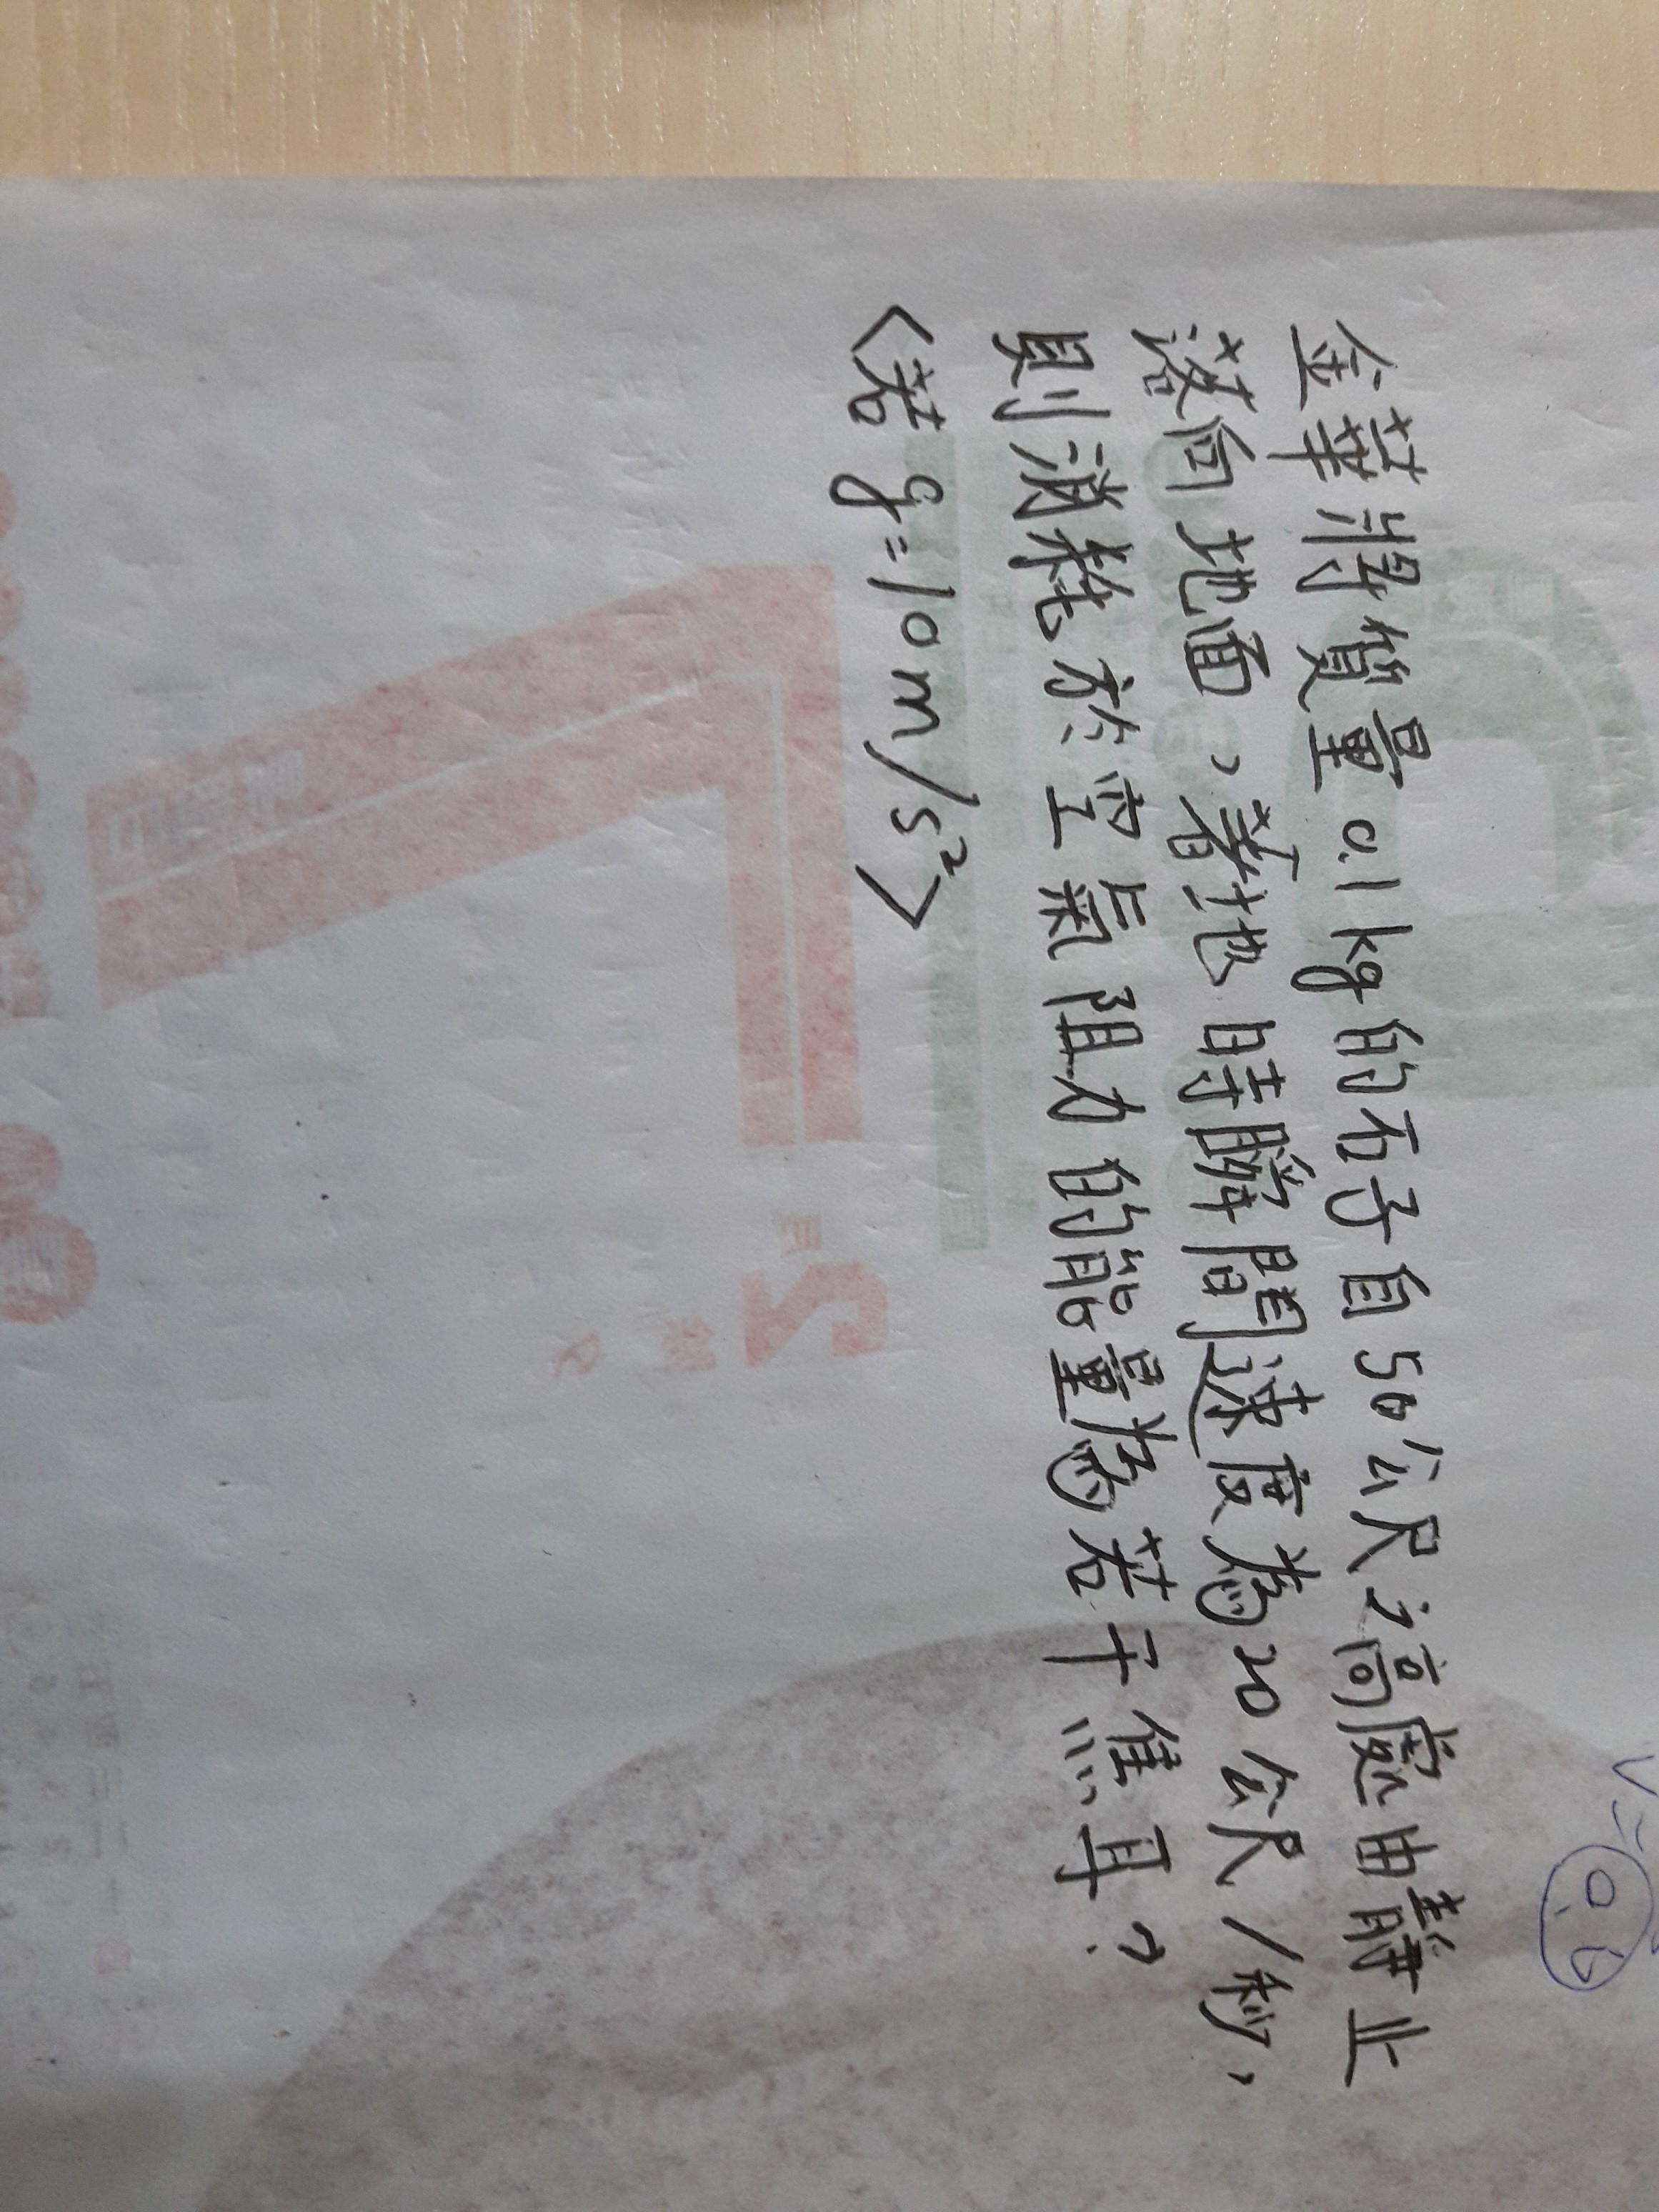 金華將質量0.1kg的石子自50公尺之高處由靜止
落向地面,著地時瞬間速度為20公尺/秒,
則消耗於空氣阻力的能量為若干焦耳?
<若g=10m/s²>